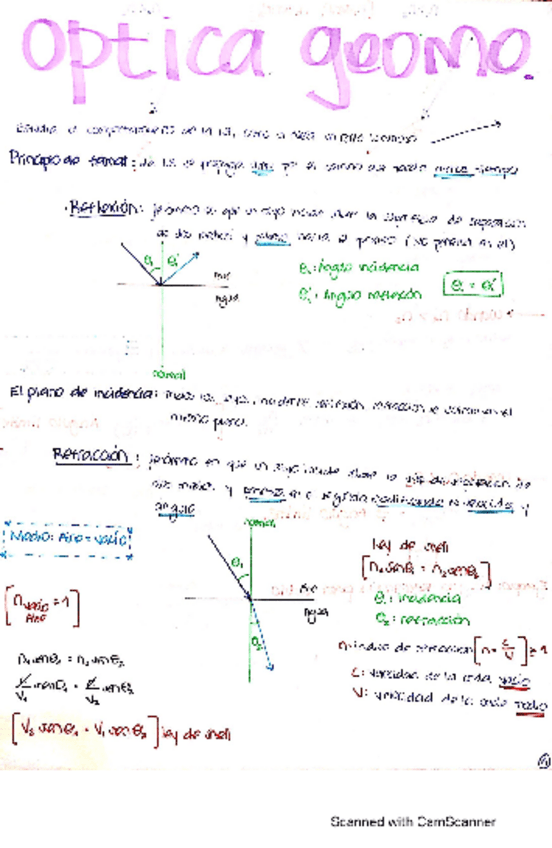 Optica geomo.
Estudia el comportamiento de la luz, como si fuera un rayo luminoso
Principio de fermat: la luz se propaga por el camino que tarde menos tiempo
Reflexión: fenómeno en que un rayo incide sobre la superficie de separación
de dos medios y vuelve hacia el primero (no penetra en el)
θ₁ θ₁'
aire
agua
normal
θ₁: ángulo incidencia
θ₁': ángulo reflexión
θ₁ = θ₁'
El plano de incidencia: rayo incidente, reflexión, refracción se en el
mismo plano.
Refracción: fenómeno en que un rayo incide sobre la de separación de
dos medios y en el segundo cambiando su velocidad y
ángulo
normal
Medio: Aire = vacío
θ₁
Aire
Agua
θ₂
ley de snell
[n₁senθ₁ = n₂senθ₂]
θ₁: incidencia
θ₂: refracción
[n vacío = 1]
Aire
n: índice de refracción [n = c/v] ≥ 1
c: velocidad de la onda vacío
v: velocidad de la onda medio
n₁senθ₁ = n₂senθ₂
c/v₁ senθ₁ = c/v₂ senθ₂
[V₂ senθ₁ = V₁ senθ₂] ley de snell
Scanned with CamScanner